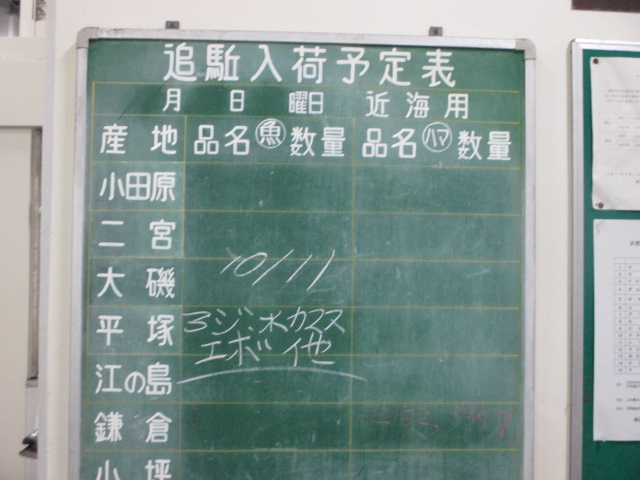 追駈入荷予定表
月 日 曜日 近海用
産地 品名 魚 数量 品名 ハマ 数量
小田原
二宮
大磯 10/11
平塚 3ジ:水カマス
エボ 他
江の島
鎌倉
小坪